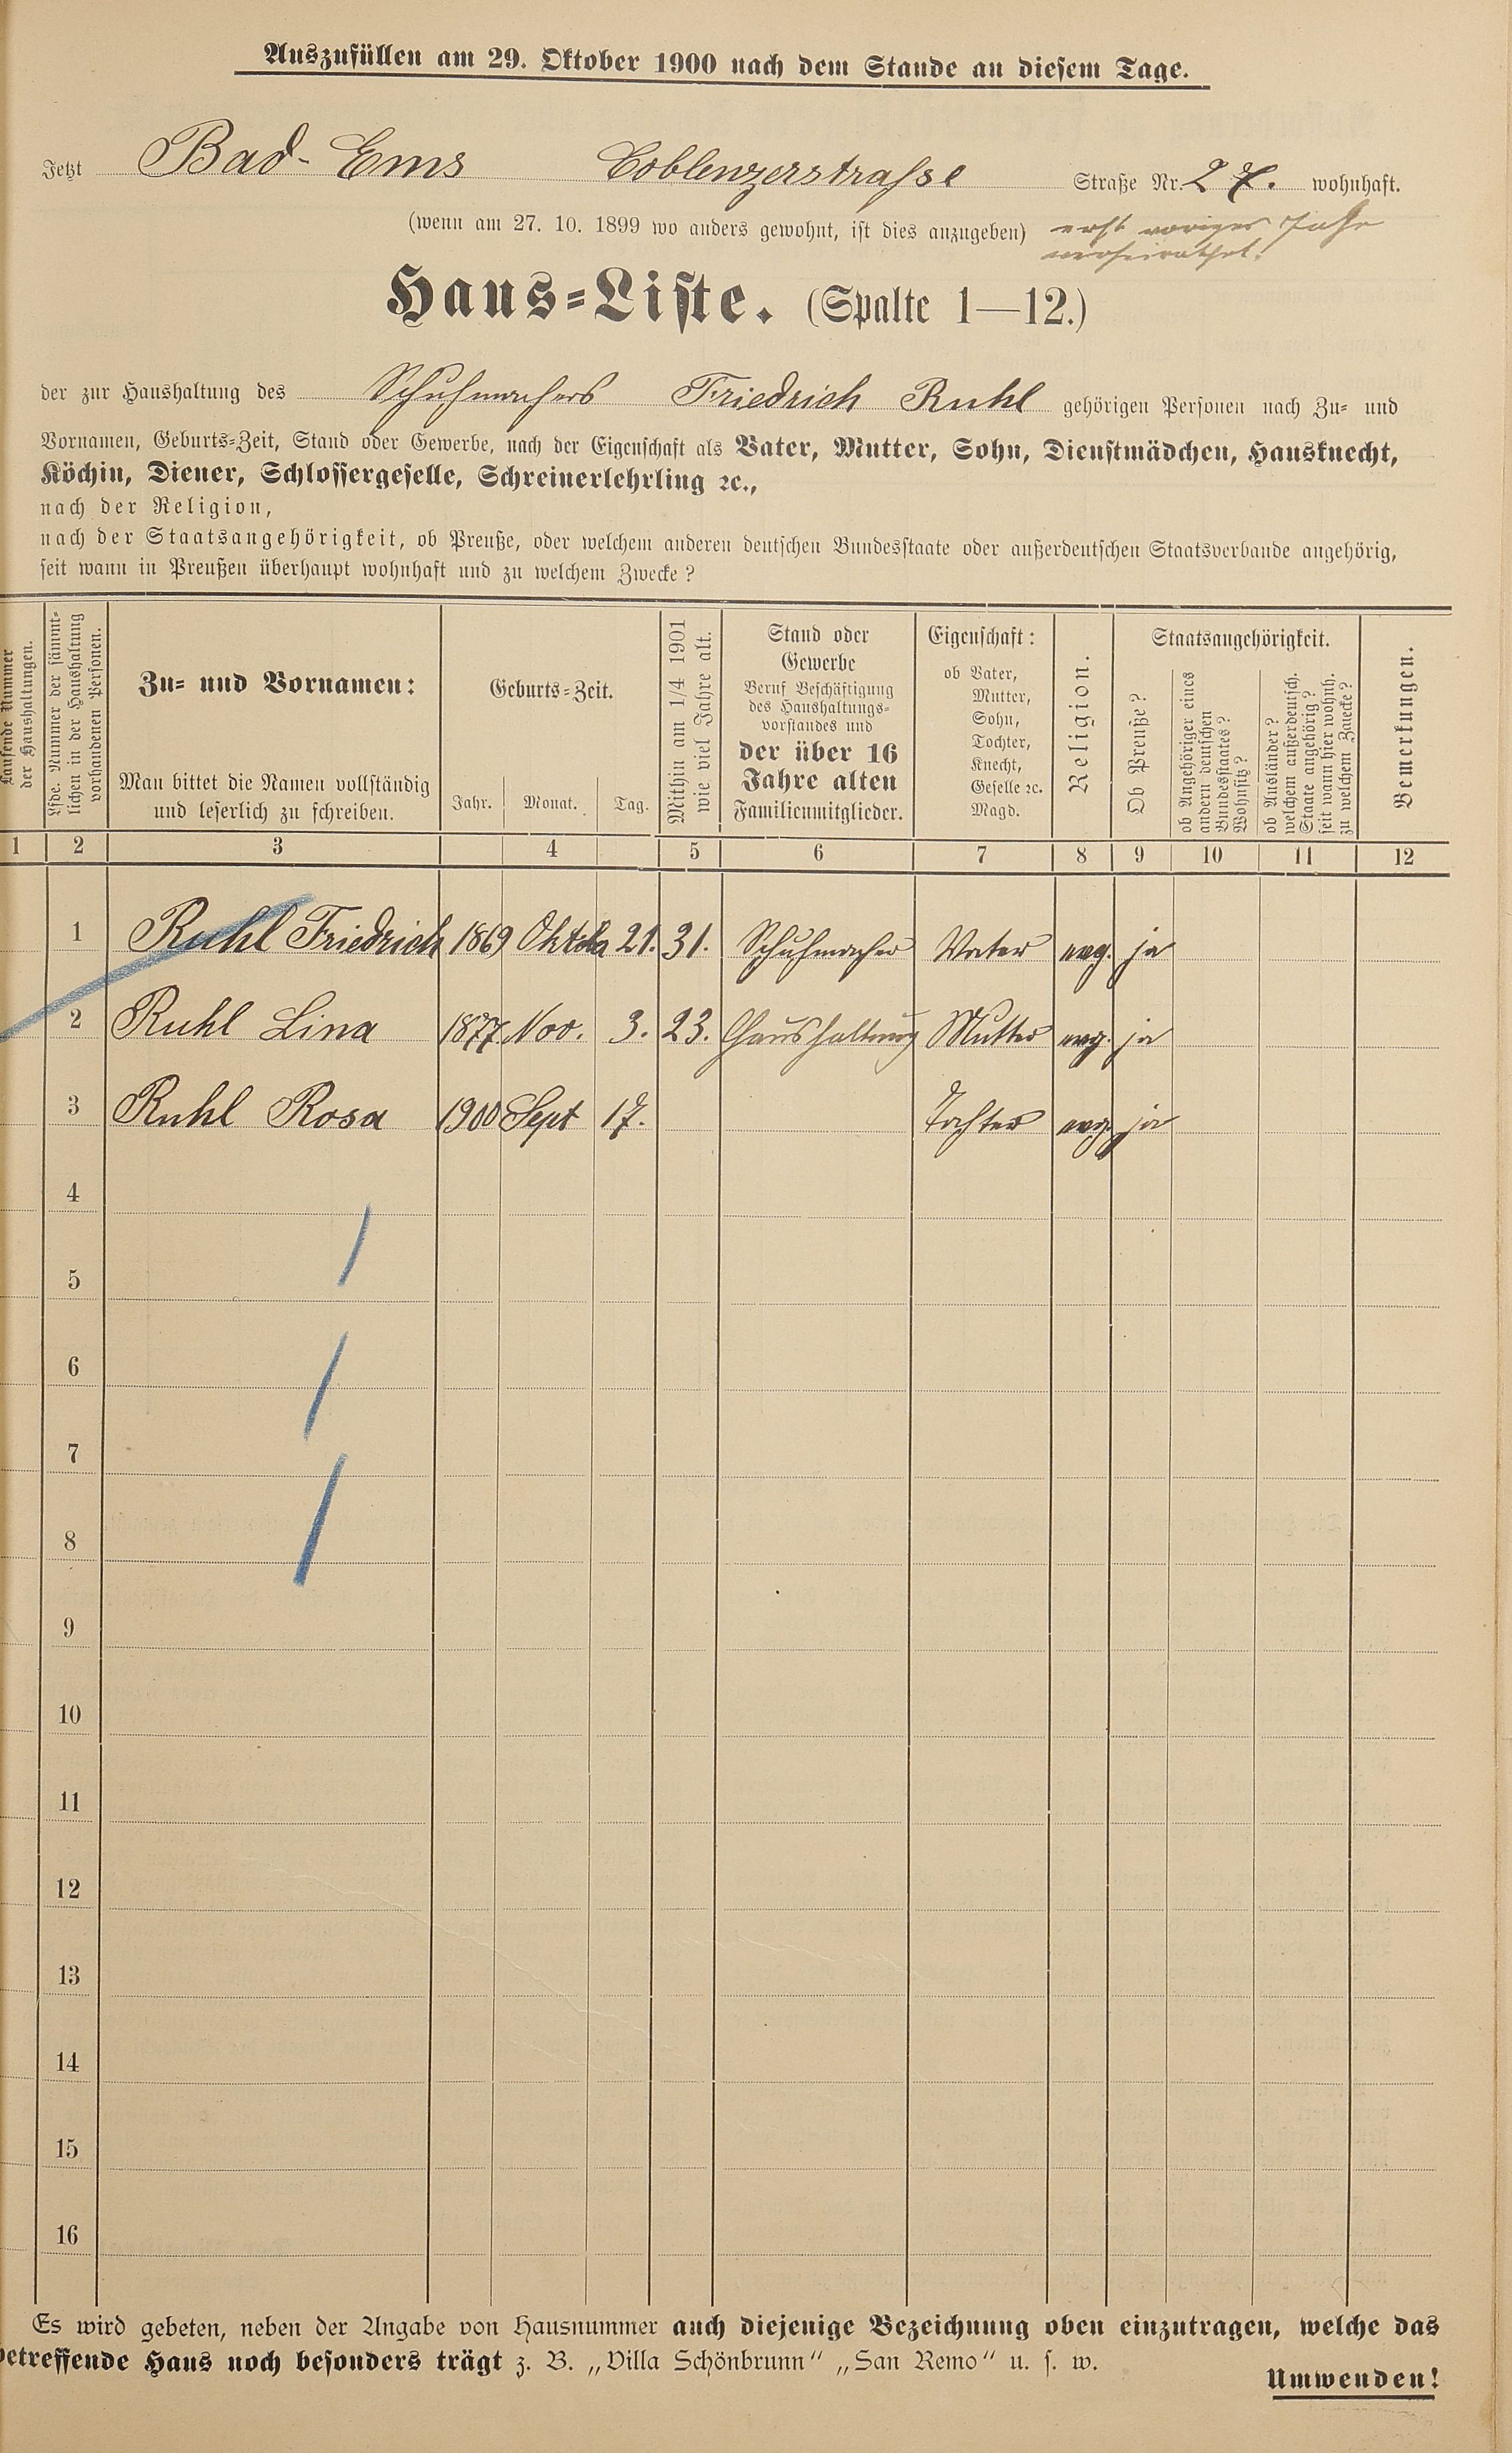 Auszufüllen am 29. Oktober 1900 nach dem Stande an diesem Tage.
Jetzt Bad-Ems Coblenzerstrasse Straße Nr. 27. wohnhaft.
(wenn am 27. 10. 1899 wo anders gewohnt, ist dies anzugeben) erst voriges Jahr
verheirathet.
Haus-Liste. (Spalte 1—12.)
der zur Haushaltung des Schuhmachers Friedrich Ruhl gehörigen Personen nach Zu- und
Vornamen, Geburts-Zeit, Stand oder Gewerbe, nach der Eigenschaft als Vater, Mutter, Sohn, Dienstmädchen, Hausknecht,
Köchin, Diener, Schlossergeselle, Schreinerlehrling ꝛc.,
nach der Religion,
nach der Staatsangehörigkeit, ob Preuße, oder welchem anderen deutschen Bundesstaate oder außerdeutschen Staatsverbande angehörig,
seit wann in Preußen überhaupt wohnhaft und zu welchem Zwecke?
Laufende Nummer
der Haushaltungen.
Lfde. Nummer der sämmt-
lichen in der Haushaltung
vorhandenen Personen.
Zu- und Vornamen:
Man bittet die Namen vollständig
und leserlich zu schreiben.
Geburts-Zeit.
Jahr. Monat. Tag.
Mithin am 1/4 1901
wie viel Jahre alt.
Stand oder
Gewerbe
Beruf Beschäftigung
des Haushaltungs-
vorstandes und
der über 16
Jahre alten
Familienmitglieder.
Eigenschaft:
ob Vater,
Mutter,
Sohn,
Tochter,
Knecht,
Geselle ꝛc.
Magd.
Religion.
Staatsangehörigkeit.
Ob Preuße?
ob Angehöriger eines
andern deutschen
Bundesstaates?
Wohnsitz?
ob Ausländer?
welchem außerdeutsch.
Staate angehörig?
seit wann hier wohnh.
zu welchem Zwecke?
Bemerkungen.
1 2 3 4 5 6 7 8 9 10 11 12
1 Ruhl Friedrich 1869 Oktob 21. 31. Schuhmacher Vater evg. ja
2 Ruhl Lina 1877 Nov. 3. 23. Haushaltung Mutter evg. ja
3 Ruhl Rosa 1900 Sept 17. Tochter evg. ja
4
5
6
7
8
9
10
11
12
13
14
15
16
Es wird gebeten, neben der Angabe von Hausnummer auch diejenige Bezeichnung oben einzutragen, welche das
betreffende Haus noch besonders trägt z. B. „Villa Schönbrunn“ „San Remo“ u. s. w.
Umwenden!